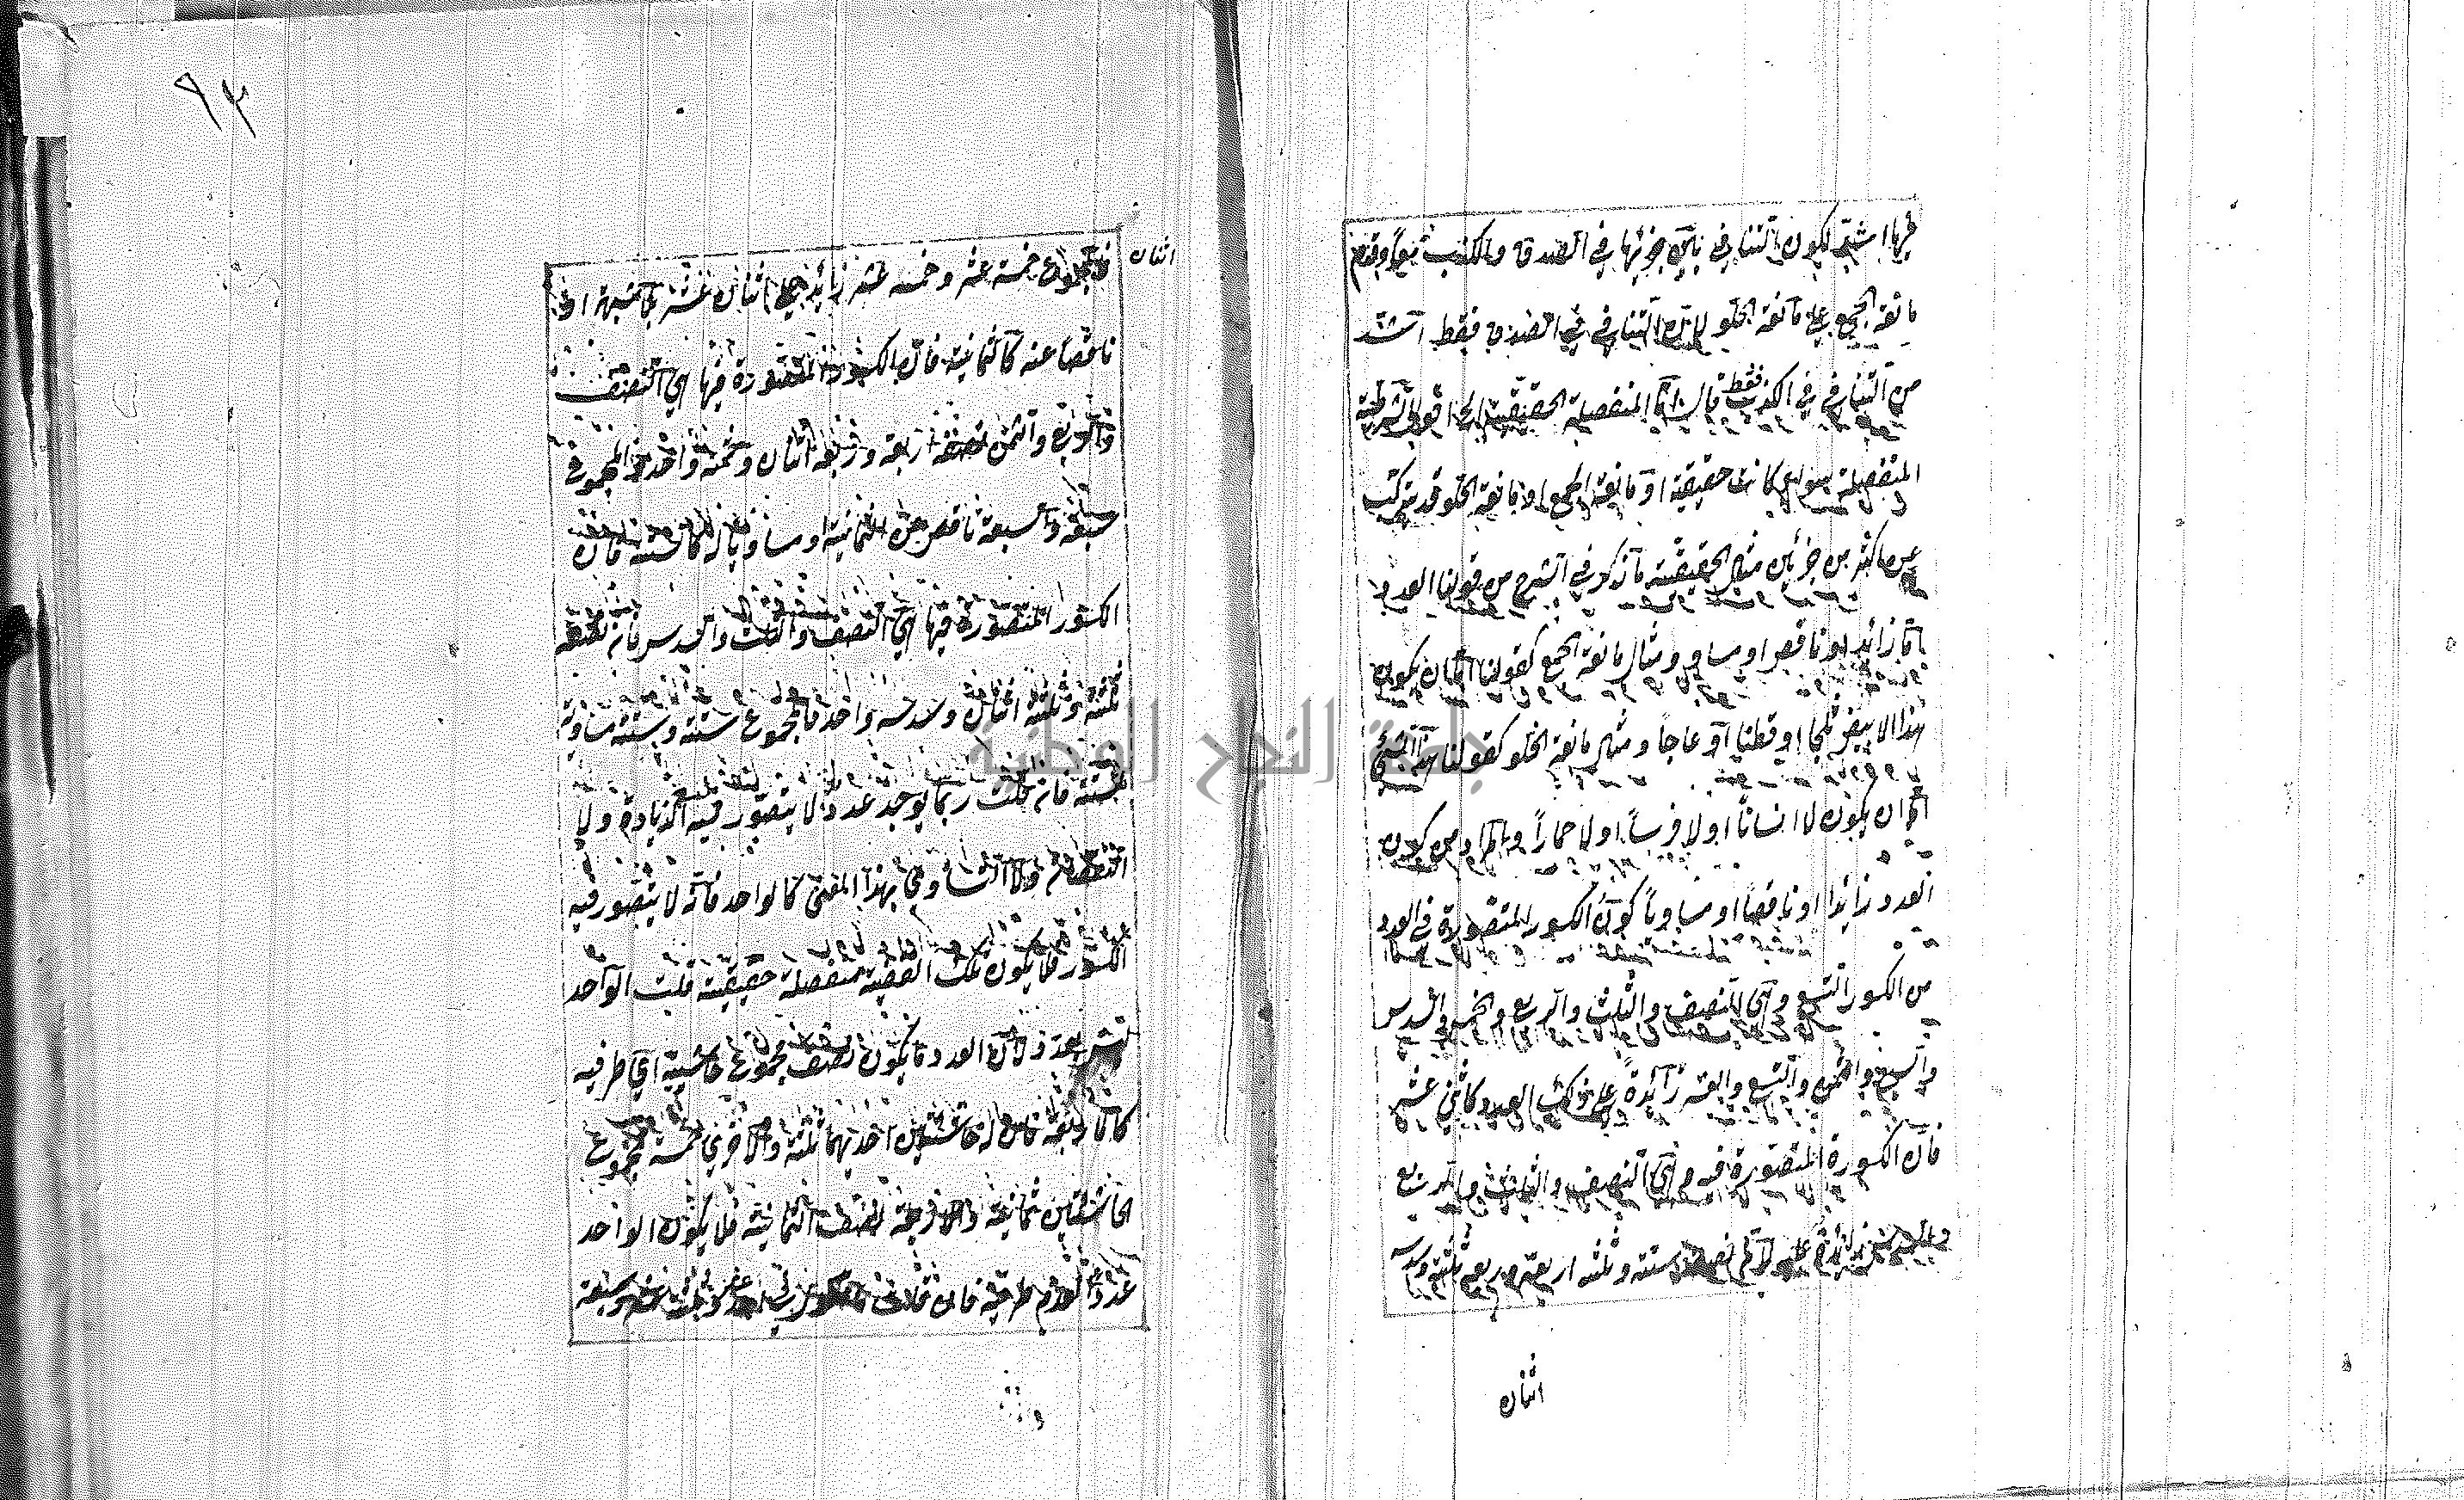 فيها اشد لكون التنافي بين جزئيها في الصدق والكذب معا وقدم
مانعة الجمع على مانعة الخلو لان التنافي في الصدق فقط اشد
من التنافي في الكذب فقط قال المنفصلة الحقيقية الخ اقول الشرطية
المنفصلة سواء كانت حقيقية او مانعة الجمع او مانعة الخلو قد يتركب
من اكثر من جزئين مثال الحقيقية ما ذكر في الشرح من قولنا العدد
اما زائد او ناقص او مساو ومثال مانعة الجمع كقولنا اما ان يكون
هذا الابيض ثلجا او قطنا او عاجا ومثال مانعة الخلو كقولنا هذا الشيء
اما ان يكون لا انسانا او لا فرسا او لا حمارا والمراد من كون
العدد زائدا او ناقصا او مساويا كون الكسور المتصورة في العدد
من الكسور التسع وهي النصف والثلث والربع والخمس والسدس
والسبع والثمن والتسع والعشر زائدة على ذلك العدد كاثني عشر
فان الكسورة المتصورة فيه وهي النصف والثلث والربع
والسدس زائدة عليه لان نصفه ستة وثلثه اربعة وربعه ثلثة وسدسه
اثنان
٩٣
اثنان
فالمجموع خمسة عشر وخمسة عشر زائد على اثنان عشر او
ناقصا عنه كالثمانية فان الكسور المتصورة فيها هي النصف
والربع والثمن نصفه اربعة وربعه اثنان وثمنه واحد فالمجموع
سبعة والسبعة ناقص من الثمانية او مساويا له كالستة فان
الكسور المتصورة فيها هي النصف والثلث والسدس فان نصفه
ثلثة وثلثه اثنان وسدسه واحد فالمجموع ستة وستة مساوية
لستة فان قلت ربما يوجد عدد لا يتصور فيه الزيادة ولا
النقصان ولا التساوي بهذا المعنى كالواحد فانه لا يتصور فيه
الكسور فلا يكون تلك القضية منفصلة حقيقية قلت الواحد
ليس بعدد لان العدد ما يكون نصف مجموع حاشيتيه اي طرفيه
كالاربعة فان له حاشيتين احديهما ثلثة والاخرى خمسة فمجموع
الحاشيتين ثمانية والاربعة نصف الثمانية فلا يكون الواحد
عددا لعدم طرفيه فان قلت